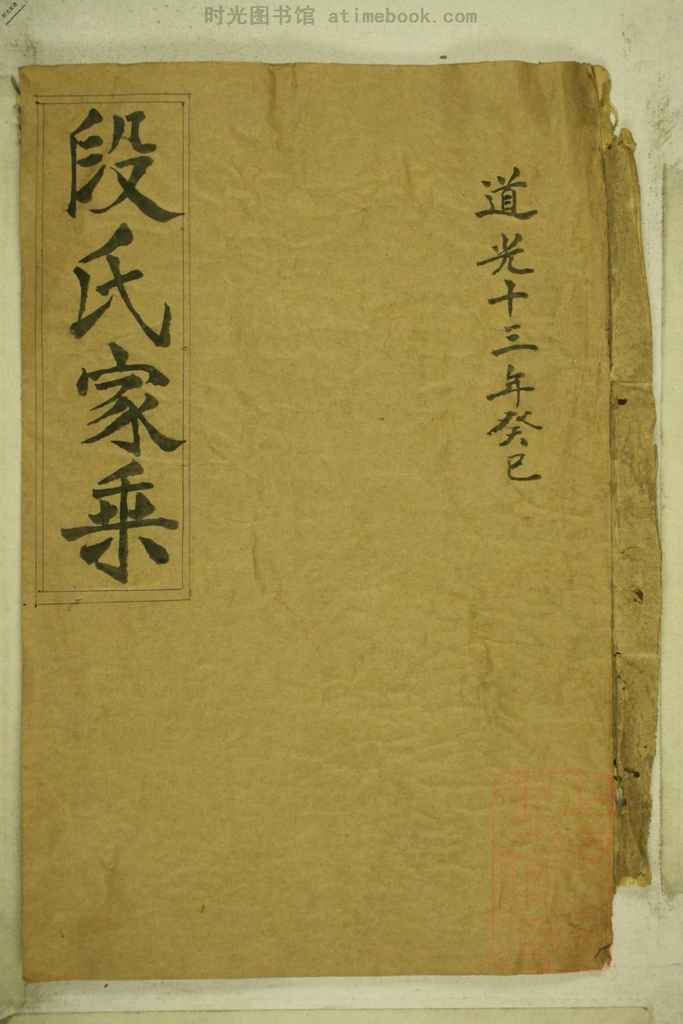 时光图书馆 atimebook.com
道光十三年癸巳
段氏家乘